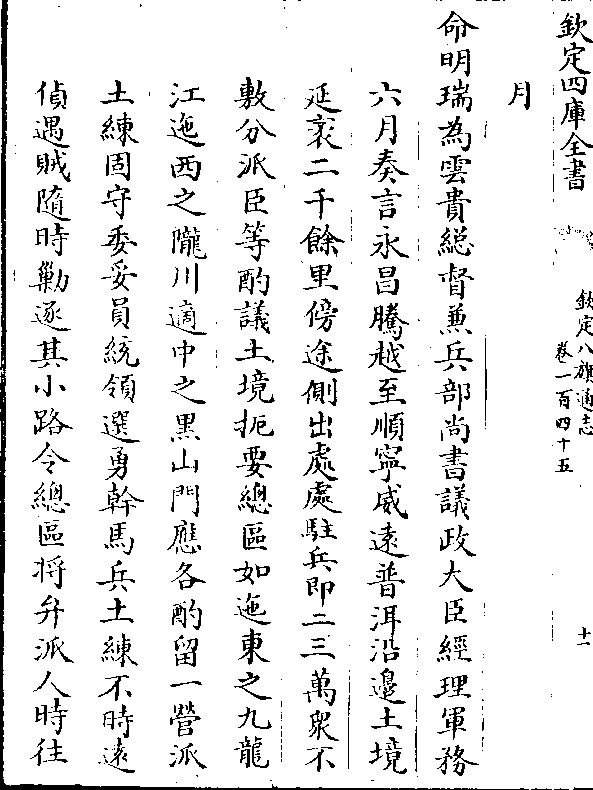 欽定四庫全書
欽定八旗通志
卷一百四十五
十一
月
命明瑞為雲貴總督兼兵部尚書議政大臣經理軍務
六月奏言永昌騰越至順寧威遠普洱沿邊土境
延袤二千餘里傍途側出處處駐兵即二三萬衆不
敷分派臣等酌議土境扼要總區如迤東之九龍
江迤西之隴川適中之黑山門應各酌留一營派
土練固守委妥員統領選勇幹馬兵土練不時遠
偵遇賊隨時勦逐其小路令總區将弁派人時往